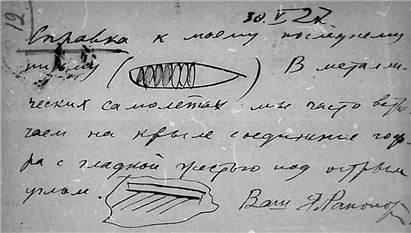 12
30.V 27
Справка к моему последнему
письму ( ) В металли-
ческих самолетах мы часто встре-
чаем на крыле соединение гоф-
ра с гладкой жестью под острым
углом. Ваш Я. Рапопорт